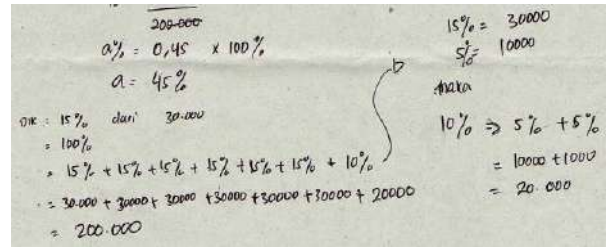 200.000
a% = 0,45 x 100%
a = 45%
DIK : 15% dari 30.000
= 100%
= 15% + 15% + 15% + 15% + 15% + 15% + 10%
= 30.000 + 30000 + 30000 + 30000 + 30000 + 30000 + 20000
= 200.000
15% = 30000
5% = 10000
maka
10% ⇒ 5% + 5%
= 10000 + 1000
= 20.000